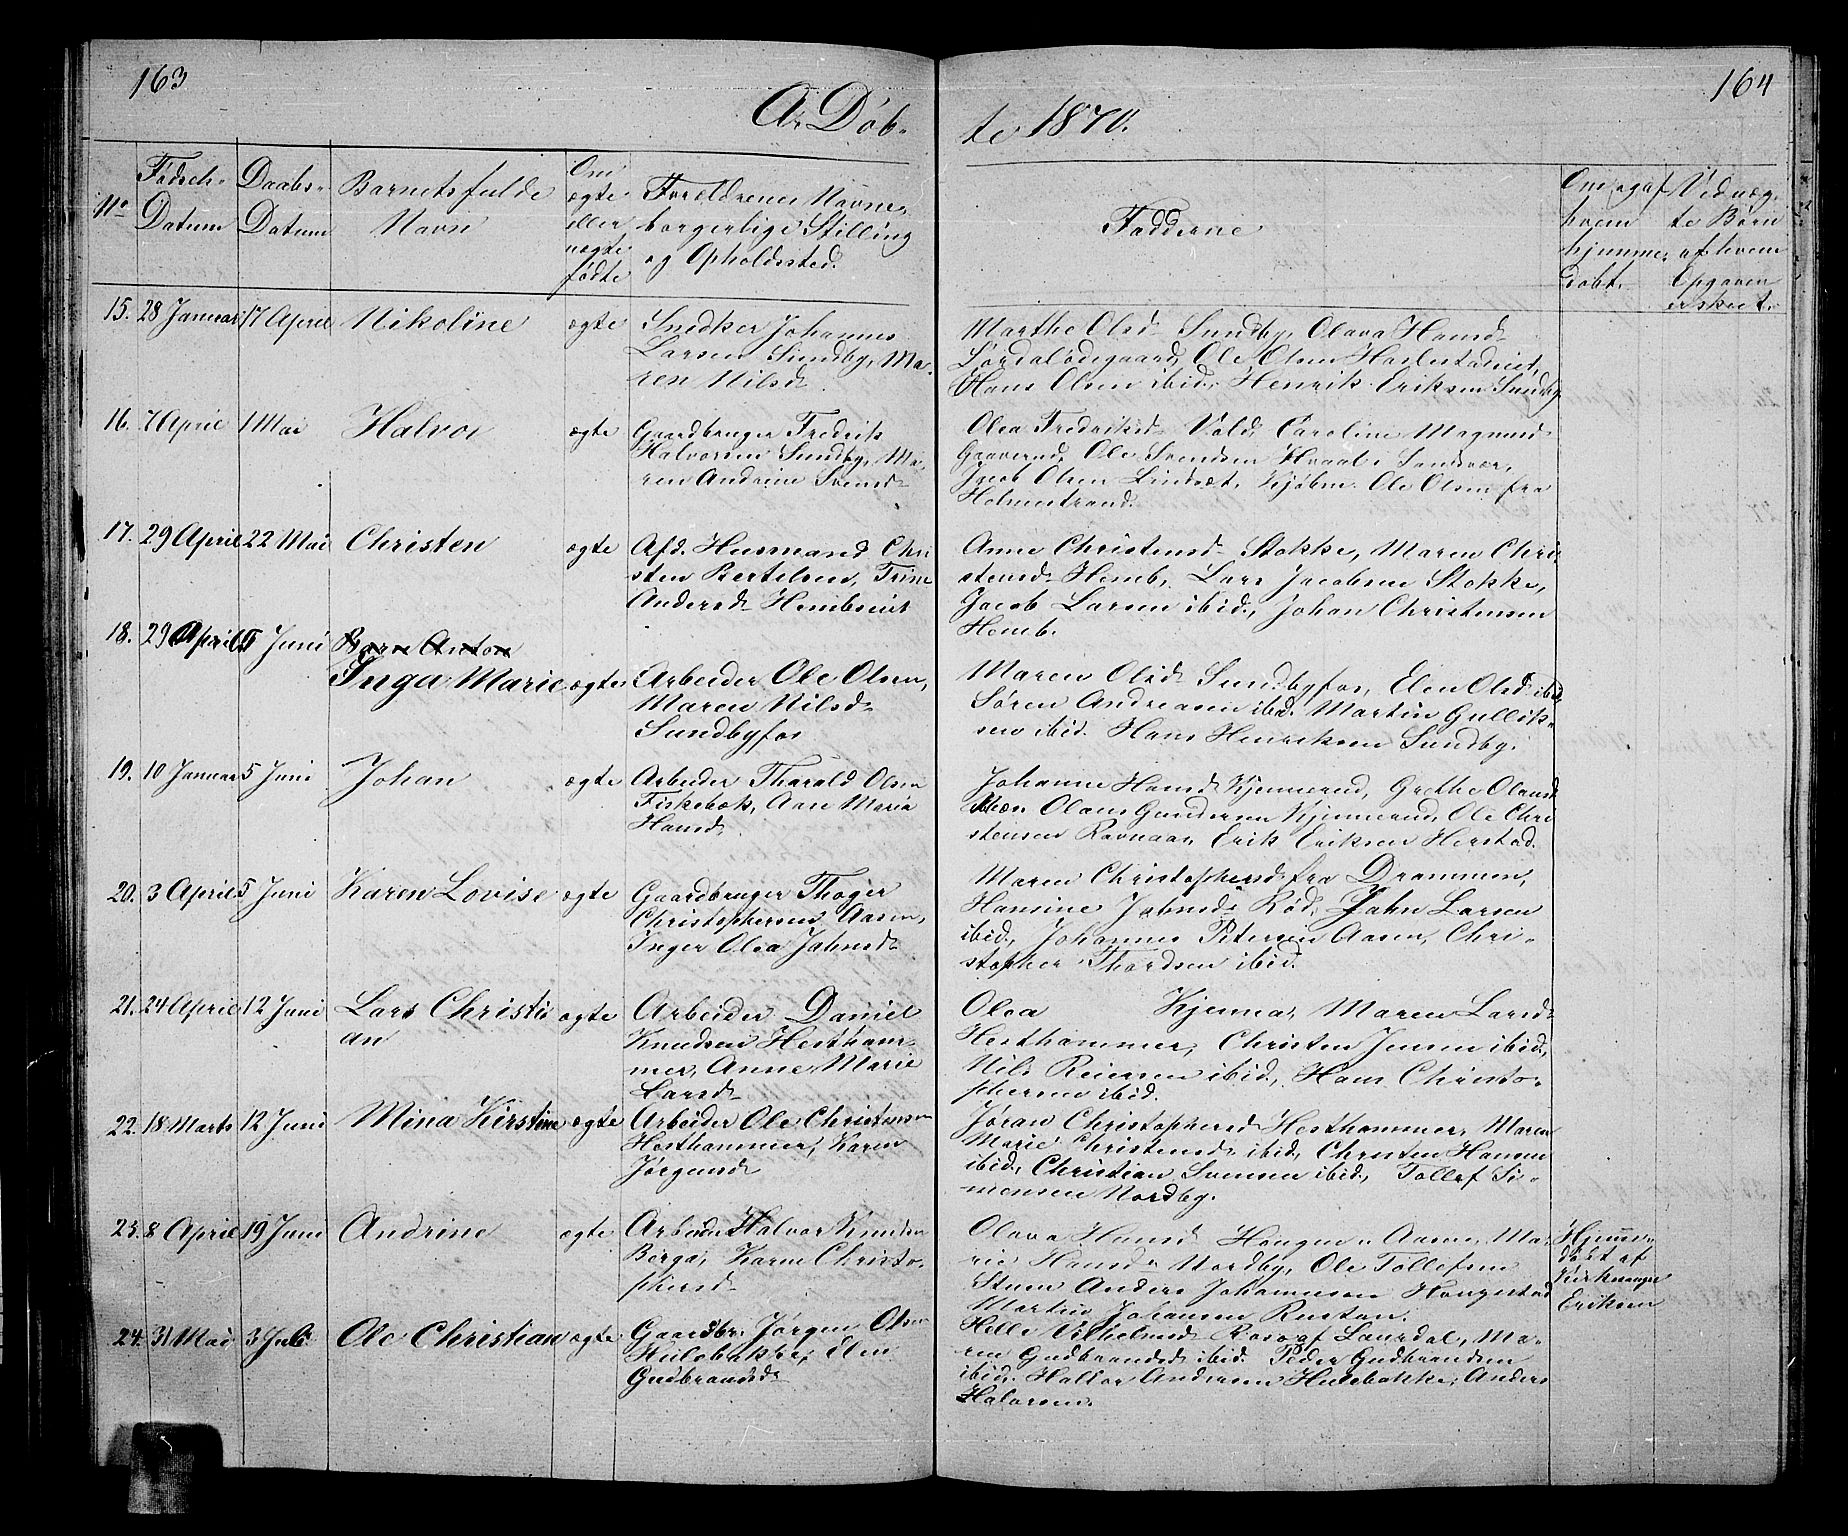 163
164
A. Döb-
te 1870.
No
Fødsels-
Datum
Daabs-
Datum
Barnets fulde
Navn
Om
ægte
eller
uægte
fødte
Forældrenes Navne,
borgerlige Stilling
og Opholdssted.
Fadderne
Om og af
hvem
hjemme-
døbt.
Ved uæg-
te Børn
af hvem
Opgaven
er skeet.
15. 28 Januar 17 April Nikoline ægte
Snedker Johannes
Larsen Sundby, Ma-
ren Nilsd.
Marthe Olsd. Sundby, Olava Hansd.
Lørdalødegaard, Ole Olsen
Hans Olsen ibid., Henrik Eriksen Sundby
16. 7 April 1 Mai Halvor ægte
Gaardbruger Fredrik
Halvorsen Sundby, Ma-
ren Andrine Svensd.
Olea Fredriksd. Vold, Caroline Magnusd.
Gaaserud, Ole Svendsen Hvaal i Sandsvær,
Jacob Olsen Lindsæt, Kjøbm. Ole Olsen fra
Holmestrand.
17. 29 April 22 Mai Christen ægte
Afd. Husmand Chri
sten Bertelsen, Trine
Andersd. Hembseiet
Anne Christensd. Stokke, Maren Chri-
stensd. Hemb, Lars Jacobsen Stokke,
Jacob Larsen ibid., Johan Christensen
Hemb.
18. 29 April 5 Juni Bern Anton
Inga Marie ægte
Arbeider Ole Olsen,
Maren Nilsd.
Sundbyfos
Maren Olsd. Sundbyfos, Elen Olsd. ibid.
Søren Andreasen ibid. Martin Gullik-
sen ibid. Hans Henriksen Sundby.
19. 10 Januar 5 Juni Johan ægte
Arbeider Tharald Olsen
Fiskebæk, Ane Maria
Hansd.
Johanne Hansd. Kjennerud, Grethe Olausd.
Olaus Gundersen Kjennerud, Ole Chri
stensen Ravnaas, Erik Eriksen Herstad.
20. 3 April 5 Juni Karen Lovise ægte
Gaardbruger Thoger
Christophersen Aasen,
Inger Olea Jahnsd.
Maren Christophersd. fra Drammen,
Hansine Jahnsd. Rød, Jahn Larsen
ibid., Johannes Petersen Aasen, Chri-
stopher Thordsen ibid.
21. 24 April 12 Juni Lars Christi
an ægte
Arbeider Daniel
Knudsen Hestham-
mer, Anne Marie
Larsd.
Olea Kjennas, Maren Larsd.
Hesthammer, Christen Jensen ibid.,
Nils Reiersen ibid., Hans Christo-
phersen ibid.
22. 18 Marts 12 Juni Mina Kirstine ægte
Arbeider Ole Christensen
Hesthammer, Karen
Jørgensd.
Jøran Christophersd. Hesthammer, Maren
Marie Christensd. ibid., Christen Hansen
ibid., Christian Svensen ibid., Tollef Si-
mensen Nordby.
23. 8 April 19 Juni Andrine ægte
Arbeider Halvor Knudsen
Berga, Karen Christo-
phersd.
Olava Hansd. Haugen u. Aasen, Ma-
rie Hansd. Nordby, Ole Tollefsen
Steen Anders Johannesen Haugestad
Martin Johansen Rustan.
Hjemme-
døbt af
Kirkesanger
Eriksen
24. 31 Mai 3 Juli Ole Christian ægte
Gaardbr. Jørgen Olsen
Hulebakke, Elen
Gudbrandsd.
Helle Vilhelmsd. Rosaaf Laurdal, Ma-
ren Gudbrandsd. ibid. Peder Gudbrandsen
ibid. Halvor Andersen Hulebakke, Anders
Halvorsen.